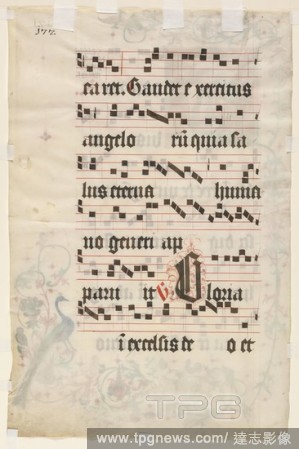 caret. Gaudet exercitus
angelo rū quia sa
lus eterna huma
no generi ap
paru it V Gloria
ī excelsis de o et
TPG
www.tpgnews.com/ 達志影像